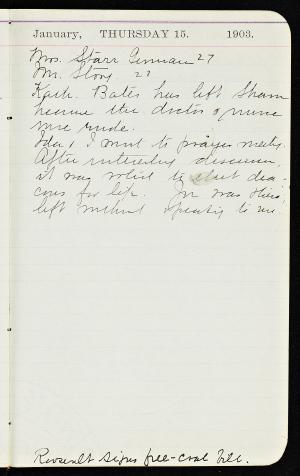 January, THURSDAY 15. 1903.
Mrs. Starr Penman 27
Mr. Story. 27
Kath. Bates has left Sham
because the doctor & nurse
were rude.
Ida & I went to prayer meeting.
After interesting discussion,
it was voted to elect dea-
cons for life. Jn was there,
left without speaking to me.
Roosevelt signs free-coal bill.